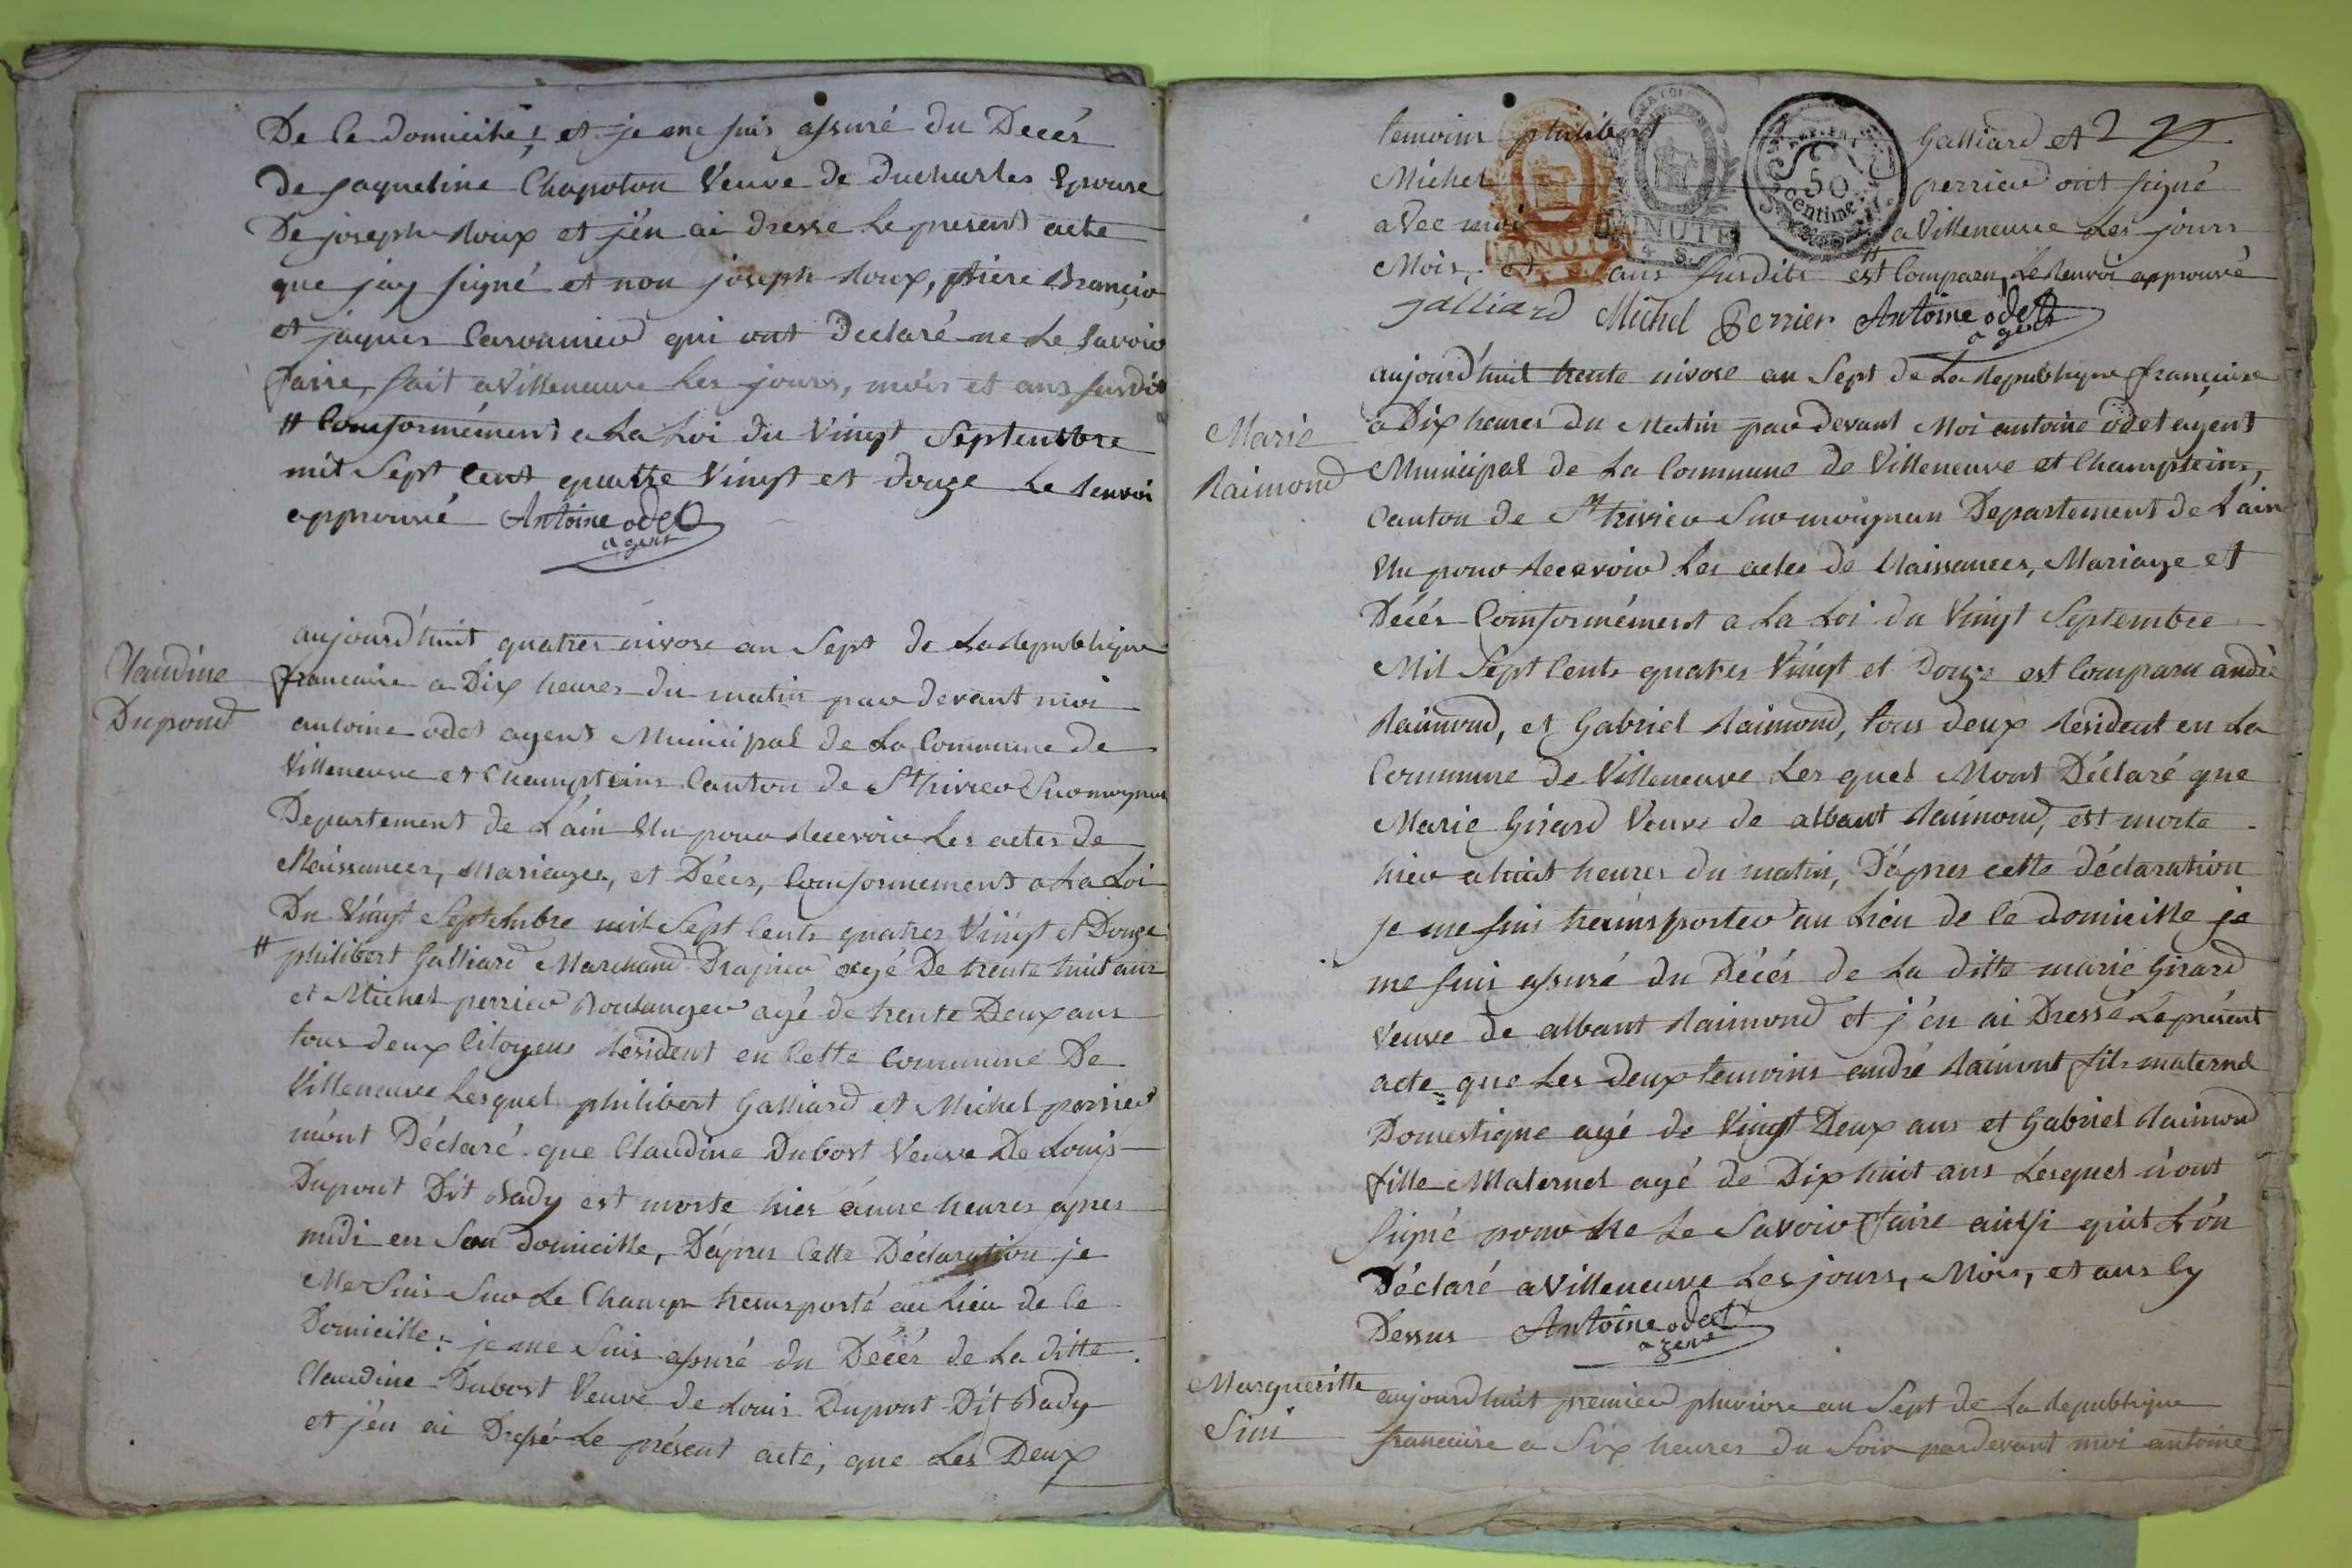 De le domicile, et je me suis assuré du Decés
de jaqueline Chapoton Veuve de duchurles Epouse
De joseph Roux et j'én ai dresse Le present acte
que jay signé et non joseph Roux,
et jaques qui ont Declaré ne Le savoir
faire, fait a Villeneuve Les jours, mois et ans susdit
# Comformément a La Loi du Vingt Septembre
mil Sept Cent quattre Vingt et douze Le renvoi
approuvé Antoine odet
agent
Claudine
Dupond
aujourd'huit quatres nivose an Sept de La Republique
francaise a Dix heures du matin par devant moi
antoine odet agent Municipal de La Commune de
Villeneuve et Champteins Canton de St trivier Sur moignan
Departement de L'ain Elu pour Recevoir Les actes de
Naissances, Mariages, et Déces, Comformement a La Loi
Du Vingt Septembre mil Sept Cents quatres Vingt et Douze
# philibert Galliard Marchand Drapier agé De trente huit ans
et Michel perrier Boulanger agé de trente Deux ans
tous deux Citoyens Résident en Cette Commune De
Villeneuve Lesquel philibert Galliard et Michel perrier
m'ont Déclaré que Claudine Dubost Veuve De Louis
Dupont Dit Bady est morte hier á une heures apres
midi en Son domicille, D'ápres Cette Déclaration je
Me Suis Sur Le Champ transporté au Lieu de le
Domicille: je me Suis assuré du Décés de La ditte
Claudine Dubost Veuve de Louis Dupont Dit Bady
et j'én ai Dressé Le présent acte, que Les Deux
temoins philibert Galliard et
Michel perrier ont signé
avec moi a Villeneuve Les jours
Mois, et ans susdits # est Comparu, Le Renvoi approuvé
MINUTE
MINUTE
50
Centime
galliard Michel Perrier Antoine odet
agent
Marie
Raimond
aujourd'huit trente nivose an Sept de La Republique françaisse
a Dix heures du Matin par devant Moi antoine odet agent
Municipal de La Commune de Villeneuve et Champteins,
Canton de St trivier Sur moignan Departement de L'ain
Elu pour Recevoir Les actes de Naissances, Mariage et
Décés Comformément a La Loi du Vingt Septembre
Mil Sept Cents quatres Vingt et Douze est Comparu andré
Raimond, et Gabriel Raimond, tous deux Résident en La
Commune de Villeneuve Les quel Mont Déclaré que
Marie Girard Veuve de albant Raimond, est morte
hier a huit heures du matin, D'ápres cette déclaration
je me suis trainsporter au Lieu de le domicille je
me suis assuré du Décés de La ditte marie Girard
Veuve de albant Raimond et j'én ai Dressé Le présent
acte que Les deux temoins andré Raimont fils maternel
Domestique agé de Vingt Deux ans et Gabriel Raimond
fille Maternel agé de Dix huit ans Lesquel n'ont
signé pour ne Le Savoir faire ainsi quit L'ón
Déclaré a Villeneuve Les jours, Mois, et ans Cy
Dessus Antoine odet
agent
Margueritte
Simi
aujourd'huit premier pluviose an Sept de La Republique
francaise a Six heures du Soir par devant moi antoine